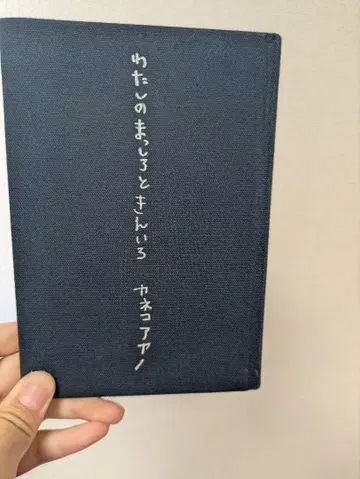 わたしのまっしろときんいろ カネコアヤノ